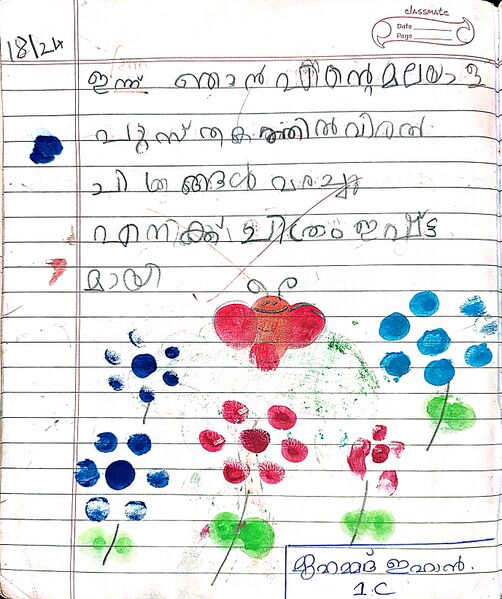 classmate
Date
Page
18/24
ഇന്ന് ഞാൻ എന്റെ മലയാള
പുസ്തകത്തിൽ വിരൽ
ചിത്രങ്ങൾ വരച്ചു
എനിക്ക് ചിത്രം ഇഷ്ട
മായി
മുഹമ്മദ് ഇഹാൻ.
1.C